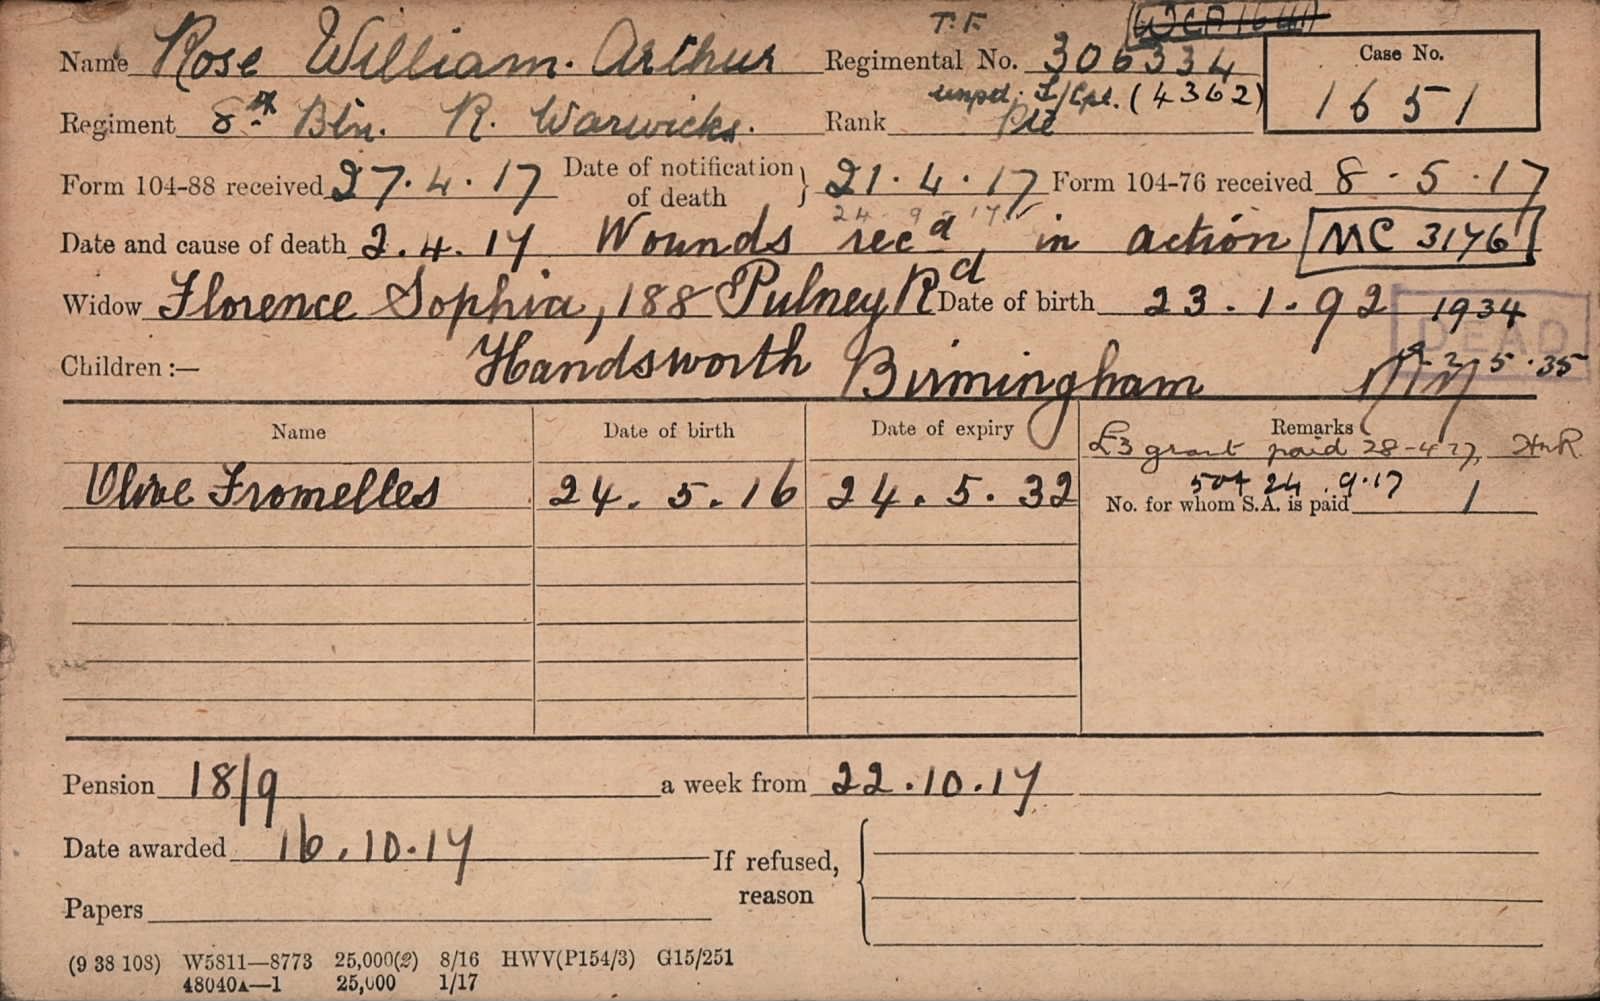 T.F.
Name Rose William. Arthur Regimental No. 306334 Case No.
unpd. L/Cpl. (4362) 1651
Regiment 8th Btn. R. Warwicks. Rank Pte
Form 104-88 received 27.4.17 Date of notification of death } 21.4.17 Form 104-76 received 8.5.17
24 9 17
Date and cause of death 2.4.17 Wounds rec'd, in action MC 3176
Widow Florence Sophia, 188 Putney Rd Date of birth 23.1.92 1934
DEAD
Children :— Handsworth Birmingham 5.35
Name Date of birth Date of expiry Remarks
£3 grant paid 28-4-17,
Olive Fromelles 24.5.16 24.5.32 24.9.17
No. for whom S.A. is paid 1
Pension 18/9 a week from 22.10.17
Date awarded 16.10.17
If refused, reason
Papers
(9 38 108) W5811—8773 25,000(2) 8/16 HWV(P154/3) G15/251
48040A—1 25,000 1/17